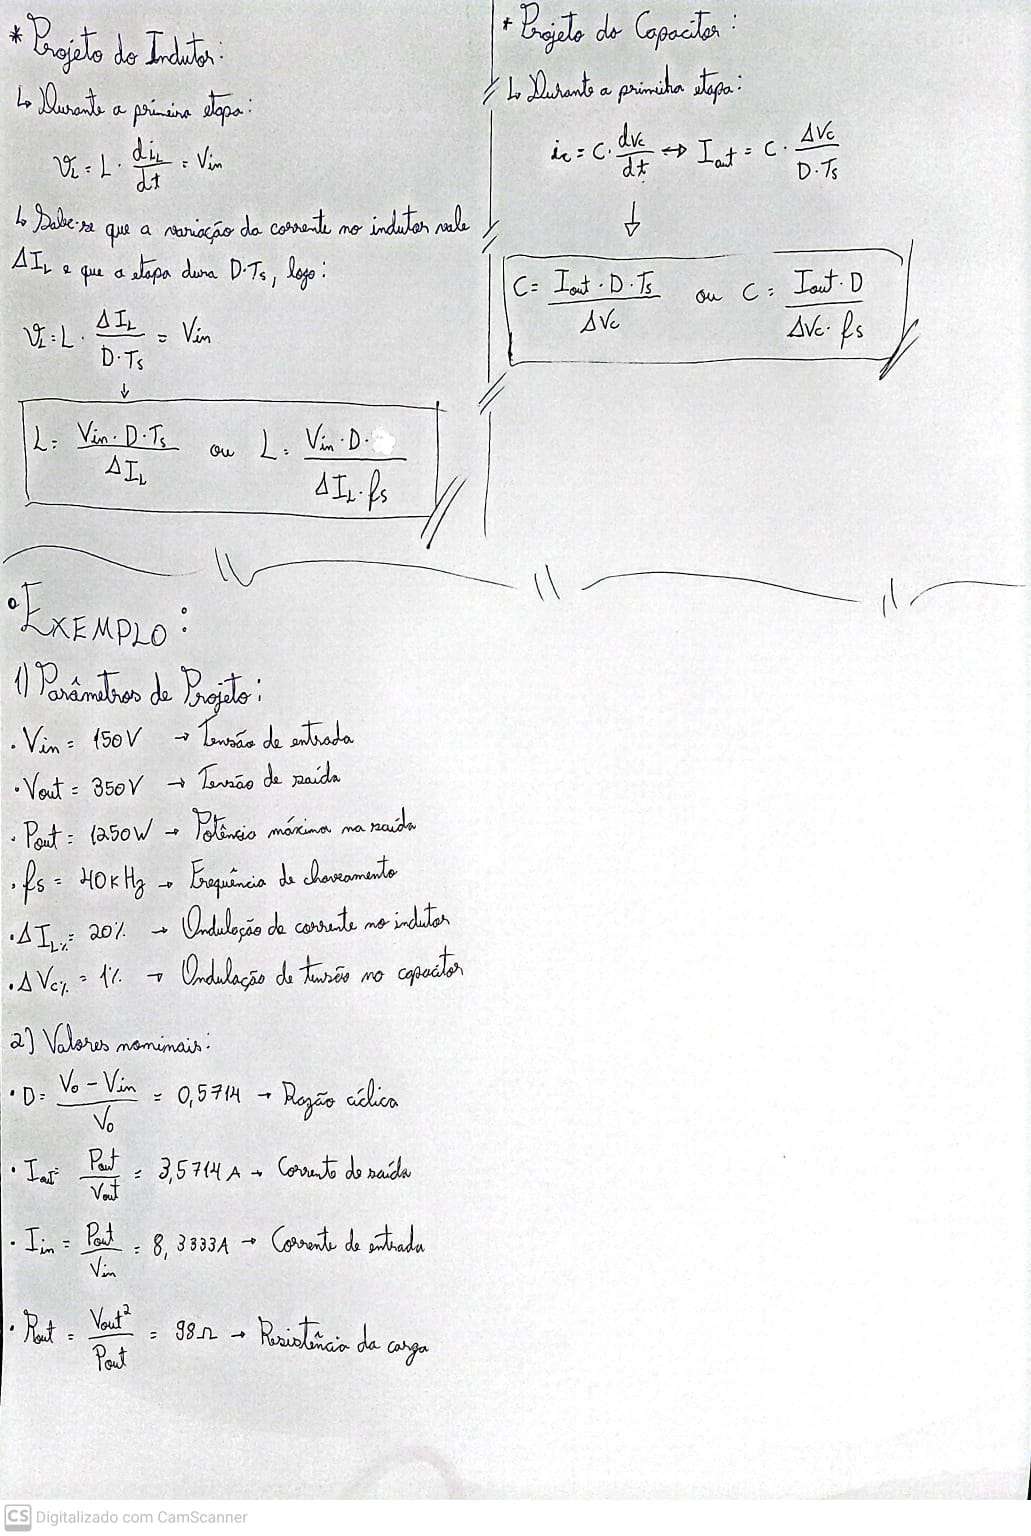 * Projeto do Indutor:
↳ Durante a primeira etapa:
V_L = L · di_L/dt = Vin
↳ Sabe-se que a variação da corrente no indutor vale
ΔI_L e que a etapa dura D·Ts, logo:
V_L = L · ΔI_L/D·Ts = Vin
↓
L = Vin·D·Ts/ΔI_L ou L = Vin·D·/ΔI_L·fs
* Projeto do Capacitor:
↳ Durante a primeira etapa:
ic = C · dvc/dt ↔ Iout = C · ΔVc/D·Ts
↓
C = Iout·D·Ts/ΔVc ou C = Iout·D/ΔVc·fs
° EXEMPLO:
1) Parâmetros de Projeto:
· Vin = 150V → Tensão de entrada
· Vout = 350V → Tensão de saída
· Pout = 1250W → Potência máxima na saída
· fs = 40kHz → Frequência de chaveamento
· ΔI_L% = 20% → Ondulação de corrente no indutor
· ΔVc% = 1% → Ondulação de tensão no capacitor
2) Valores nominais:
· D = Vo - Vin/Vo = 0,5714 → Razão cíclica
· Iout = Pout/Vout = 3,5714A → Corrente de saída
· Iin = Pout/Vin = 8,3333A → Corrente de entrada
· Rout = Vout²/Pout = 98Ω → Resistência da carga
CS Digitalizado com CamScanner